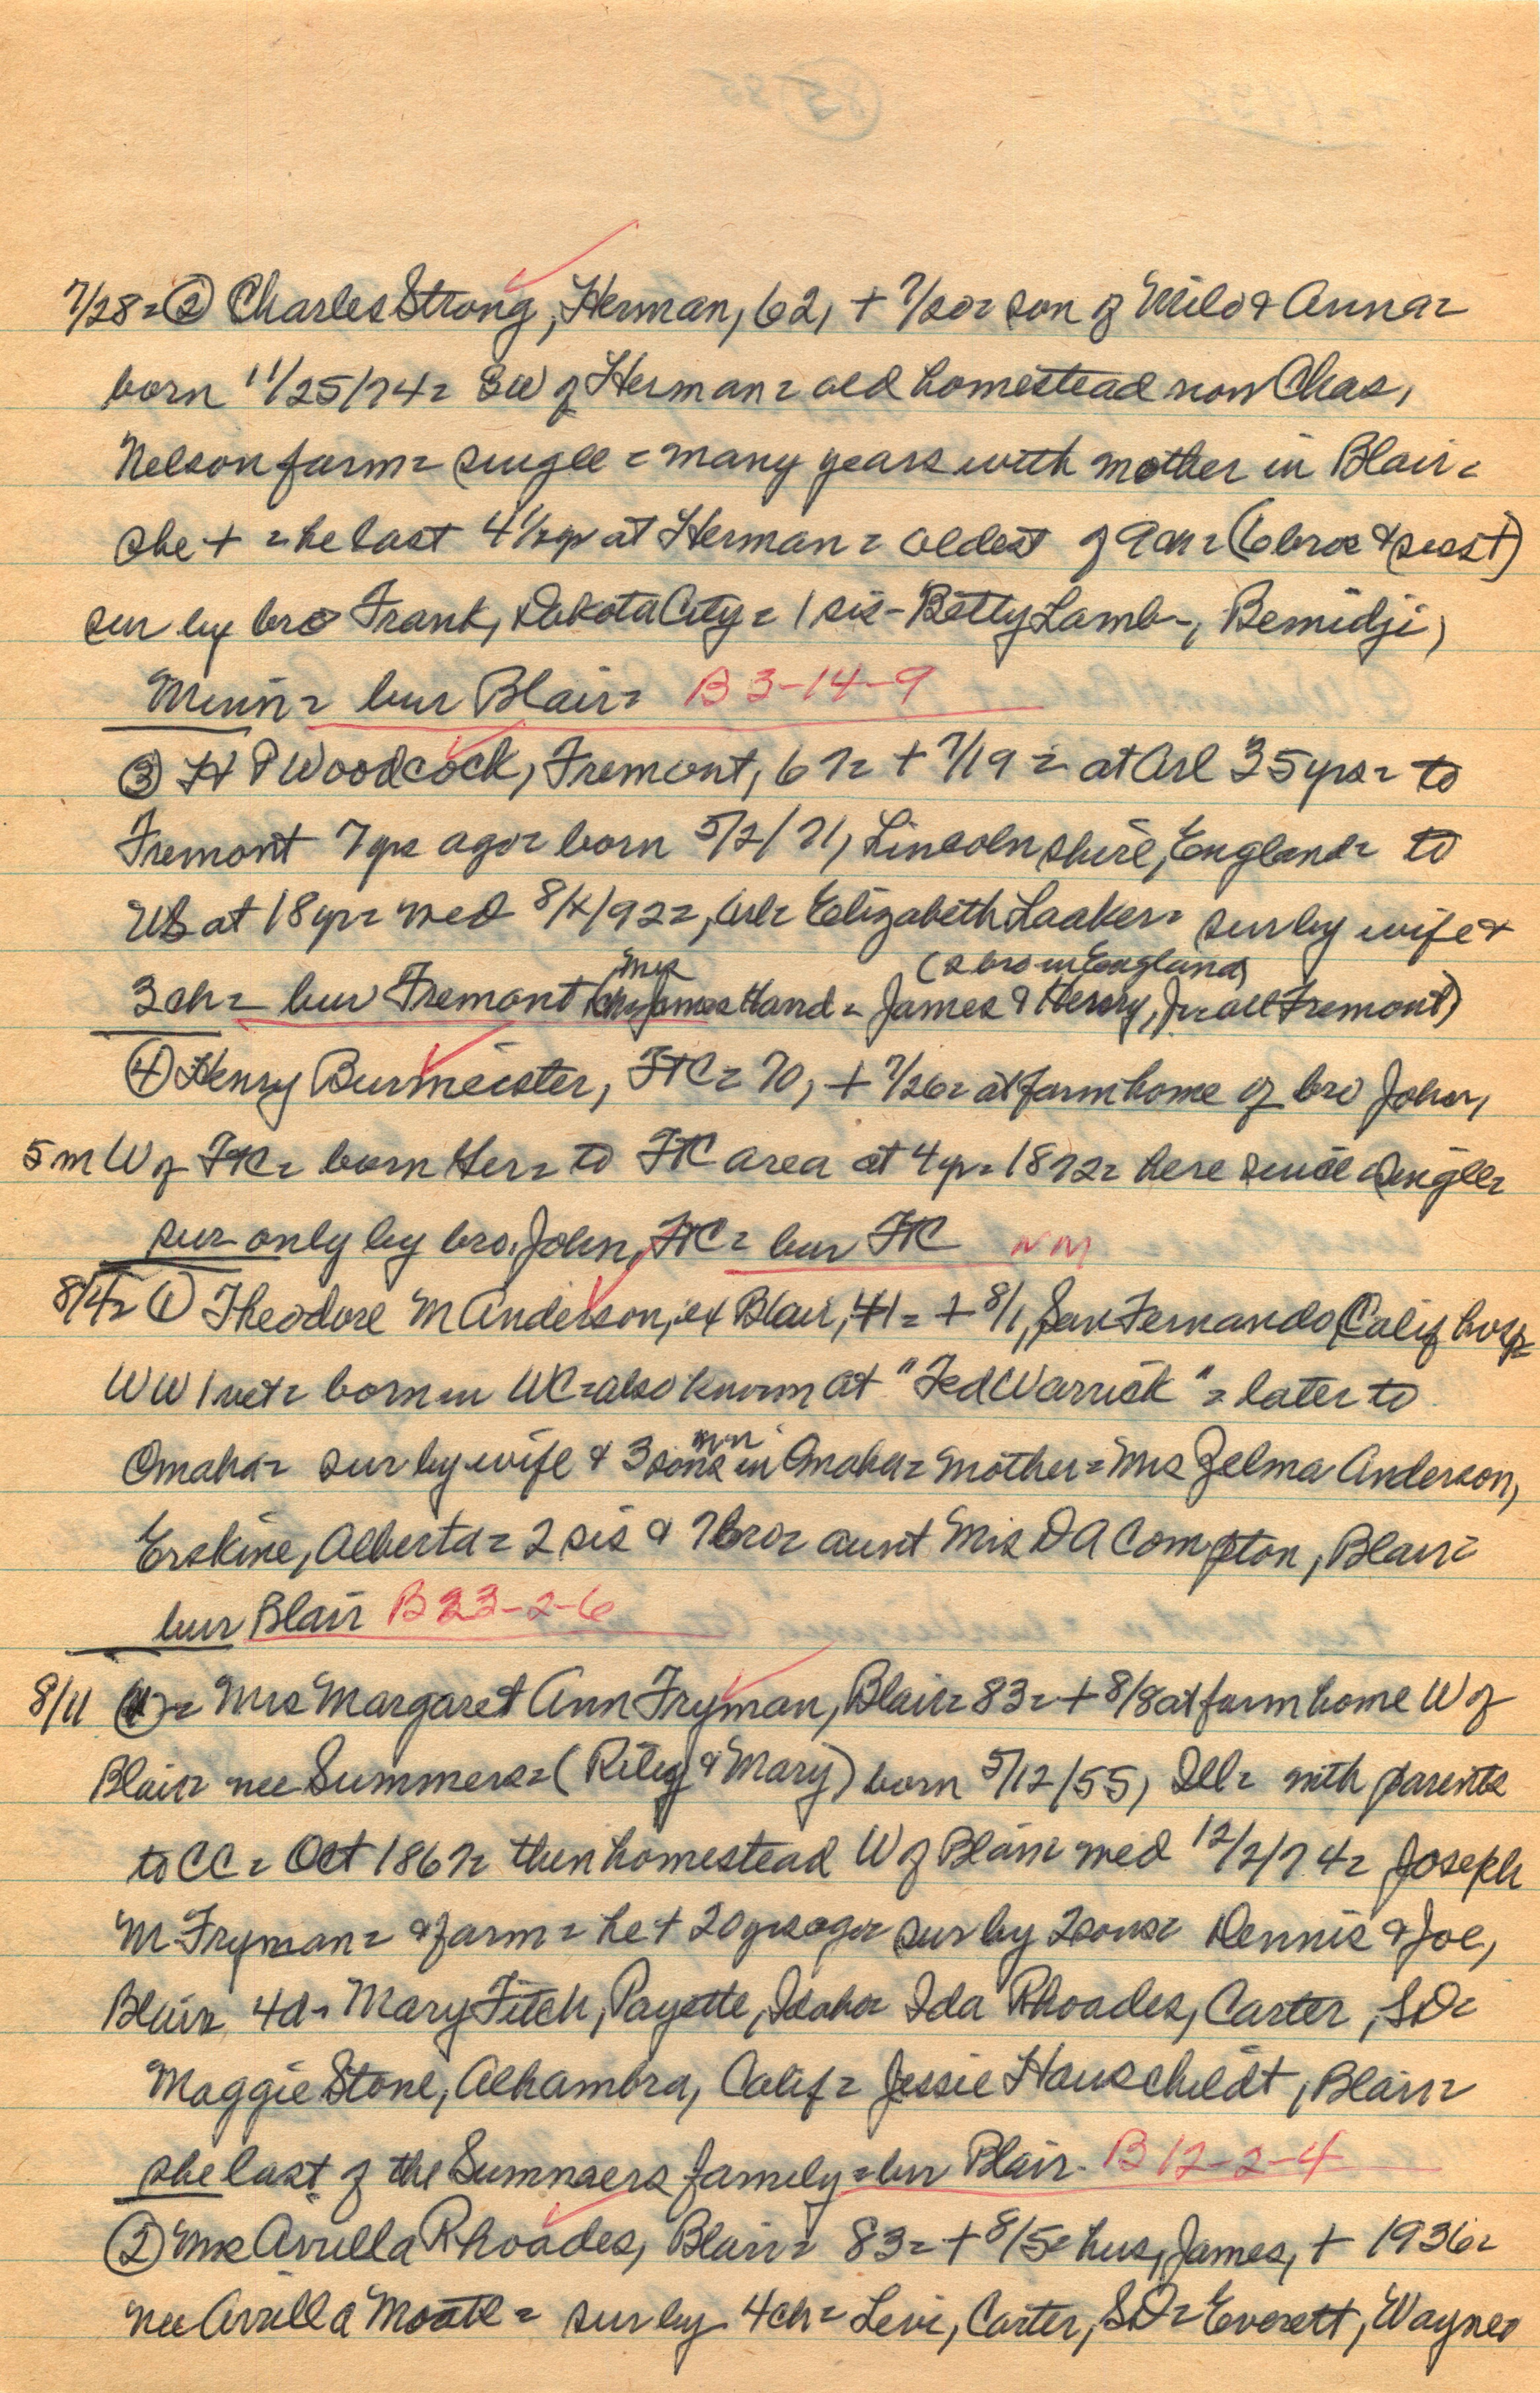 7/28 = ② Charles Strong, Herman, 62, + 7/20 = son of Milo & Anna =
born 11/25/74 = SW of Herman = old homestead now Chas,
Nelson farm = single = many years with mother in Blair =
she + = he last 4 1/2 yr at Herman = oldest of 9 ch = (6 bros & sis +)
sur by bro Frank, Dakota City = 1 sis - Betty Lamb -, Bemidji,
Minn = bur Blair = B 3-14-9
③ H P Woodcock, Fremont, 67 = + 7/19 = at Arl 35 yrs = to
Fremont 7 yrs ago = born 5/2/71, Lincolnshire, England = to
US at 18 yr = med 8/4/92 =, Arl = Elizabeth Laaker = sur by wife &
(2 bro in England)
3 ch = bur Fremont (ch = Mrs James Hand = James & Henry, Jr = all Fremont)
④ Henry Burmeister, FtC = 70, + 7/26 = at farm home of bro John,
5 m W of FtC = born Ger = to FtC area at 4 yr = 1872 = here since = single =
sur only by bro. John, FtC = bur FtC NM
8/4 = ① Theodore M Anderson, ex Blair, 41 = + 8/1, San Fernando Calif hosp =
WW 1 vet = born in WC = also known at "Ted Warrick" = later to
Omaha = sur by wife & 3 sons in Omaha = mother = Mrs Zelma Anderson,
Erskine, Alberta = 2 sis & 7 bro = aunt Mrs D A Compton, Blair =
bur Blair B 23-2-6
8/11 ① = Mrs Margaret Ann Fryman, Blair = 83 = + 8/8 at farm home W of
Blair = nee Summers = (Riley & Mary) born 5/12/55, Ill = with parents
to CC = Oct 1867 = then homestead W of Blair = med 12/2/74 = Joseph
M Fryman = & farm = he + 20 yrs ago = sur by 2 sons = Dennis & Joe,
Blair = 4 d = Mary Fitch, Payette, Idaho = Ida Rhoades, Carter, SD =
Maggie Stone, Alhambra, Calif = Jessie Hauschildt, Blair =
she last of the Summers family = bur Blair. B 12-2-4
② Mrs Arrilla Rhoades, Blair = 83 = + 8/5 = hus, James, + 1936 =
nee Arrilla = sur by 4 ch = Levi, Carter, SD = Everett, Wayne =